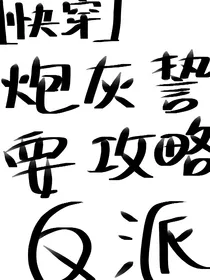 [快穿]
炮灰誓
要攻略
反派